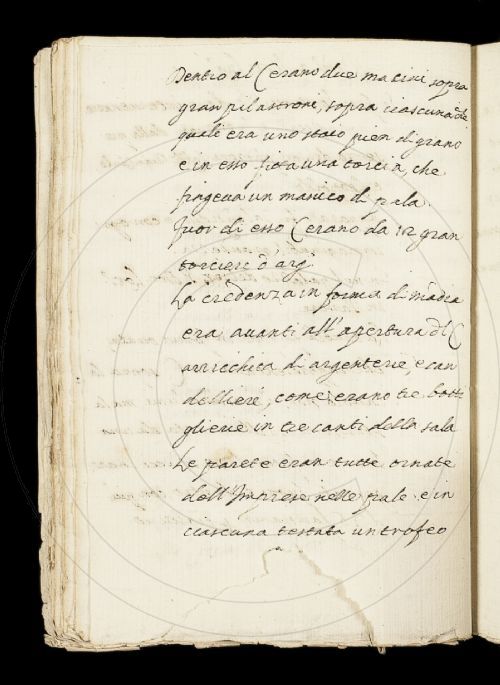 Dentro al Cerano due macini sopra
gran pilastroni, sopra ciascuna de
quali era uno staio pien di grano
e in esso fitta una torcia, che
fingeva un manico di pala
fuor di esso Cerano da 12 gran
torciere d'arg
La credenza in forma di madia
era avanti all'apertura di C
arricchita di argenterie e can
dellieri, come erano tre botti
glierie in tre canti della sala
Le parete eran tutte ornate
dell'Imprese nelle pale e in
ciascuna testata un trofeo